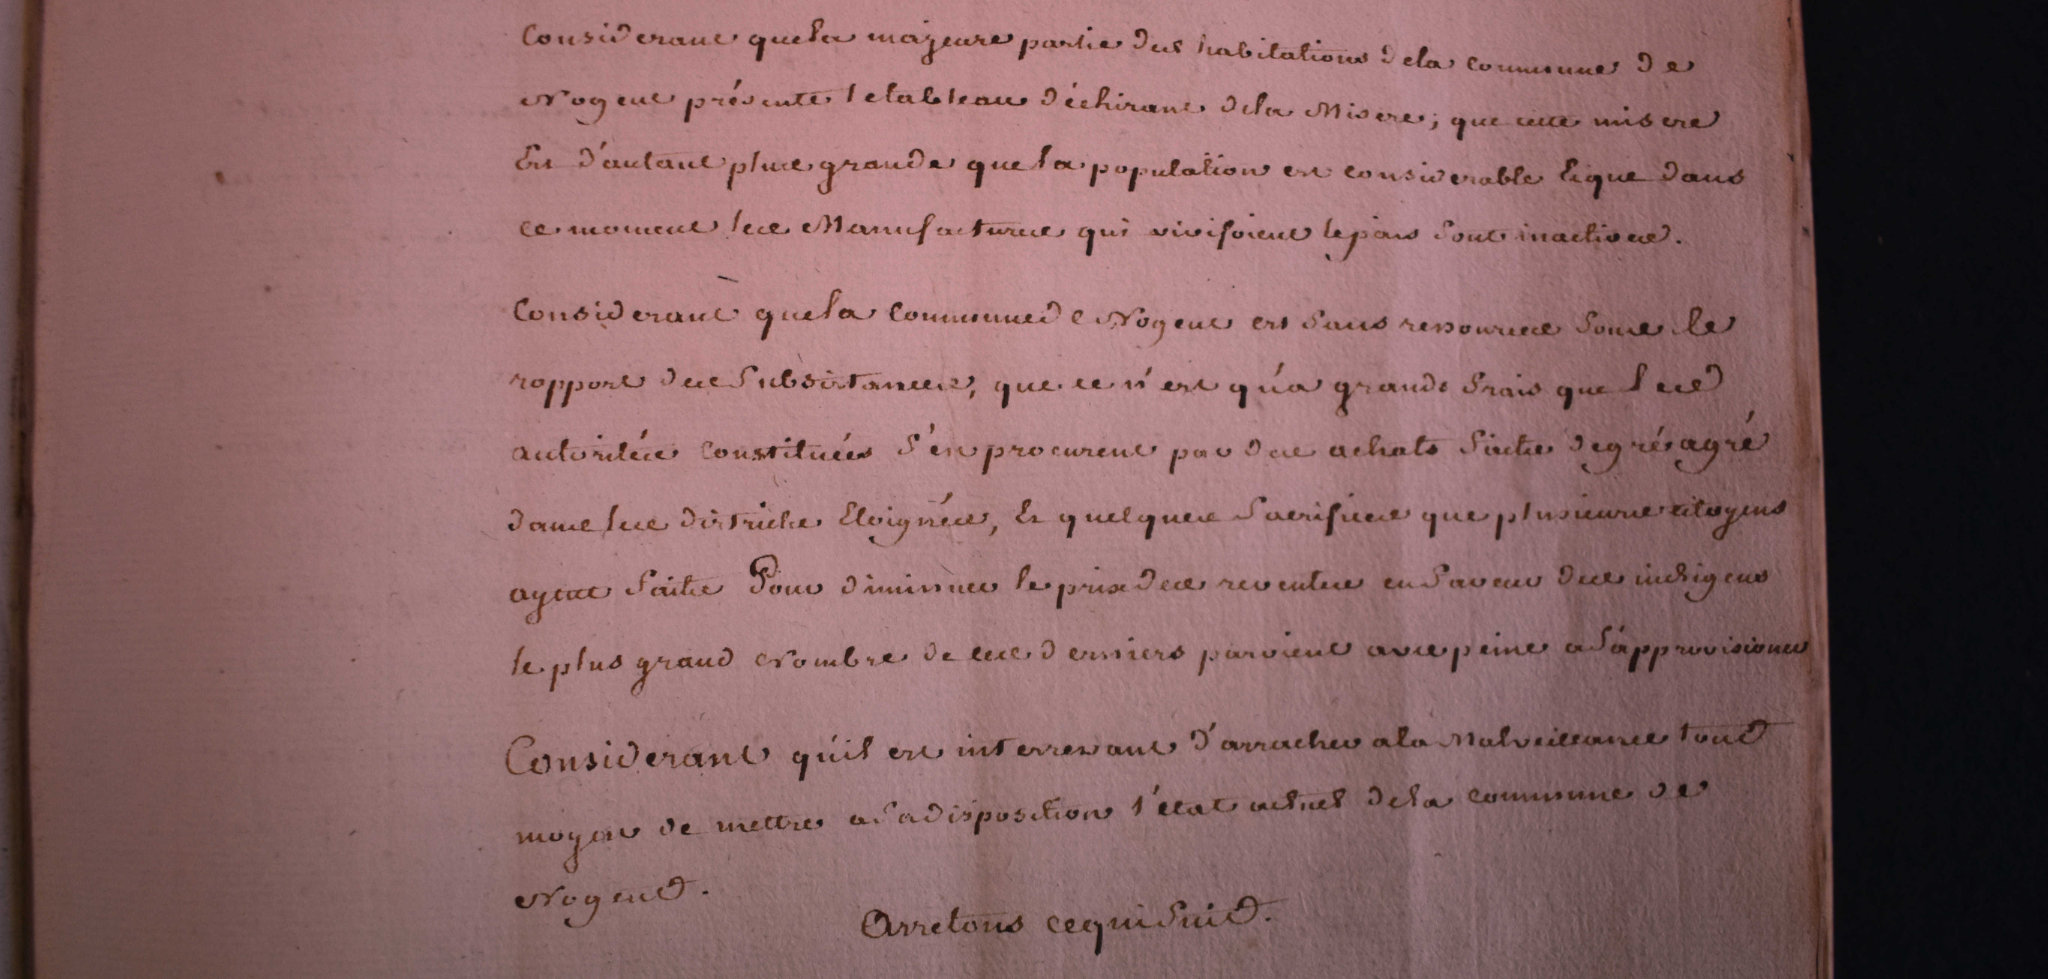 Considerant que la majeure partie des habitations de la commune de
Nogent présente le tableau déchirant de la Misere; que cette misere
Est d'autant plus grande que la population est considerable Et que dans
ce moment les Manufactures qui vivifoient le païs sont inactives.
Considerant que la Commune de Nogent est sans ressources sous le
rapport des Subsistances, que ce n'est qu'a grands frais que les
autorités constituées s'en procurent par des achats faits de gré a gré
dans les districts Eloignés, Et quelques sacrifices que plusieurs citoyens
ayent faits Pour diminuer le prix des reventes en faveur des indigens
le plus grand Nombre de ces derniers parvient avec peine a s'approvisioner
Considerant qu'il est interressant d'arracher a la Malveillance tout
moyen de mettre a sa disposition l'état actuel de la commune de
Nogent.
Arretons ce qui suit.